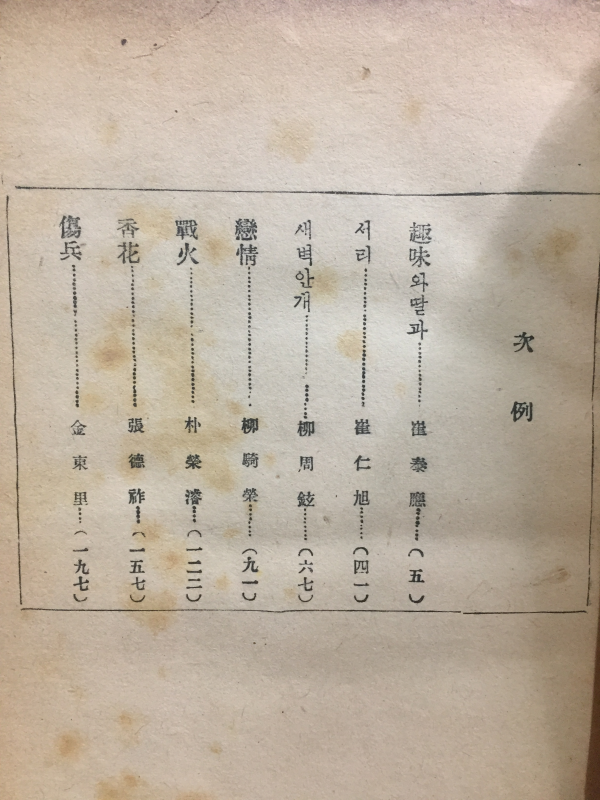 次例
趣味와딸과……崔泰應……(五)
서리……崔仁旭……(四一)
새벽안개……柳周鉉……(六七)
戀情……柳騎榮……(九一)
戰火……朴榮濬……(一二二)
香花……張德祚……(一五七)
傷兵……金東里……(一九七)